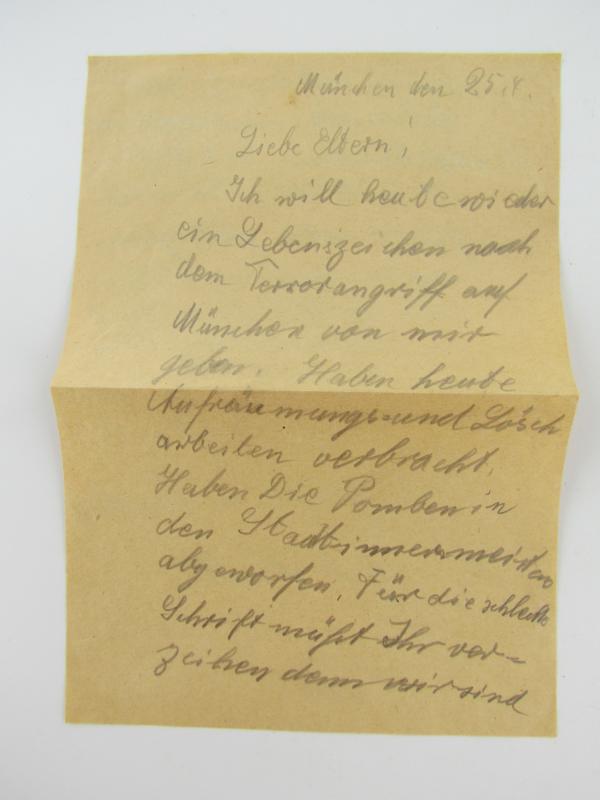 München den 25.4.
Liebe Eltern!
Ich will heute wieder
ein Lebenszeichen nach
dem Terrorangriff auf
München von mir
geben. Haben heute
Aufräumungs-und Lösch
arbeiten verbracht.
Haben Die Pomben in
den Stadtinnern meisten
abgeworfen. Für die schlechte
Schrift müßt Ihr ver-
zeihen denn wir sind